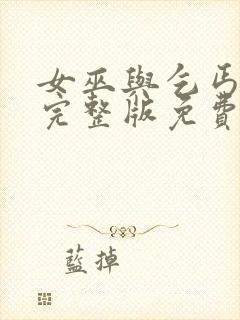 女巫與乞丐
完整版免費
藍掉